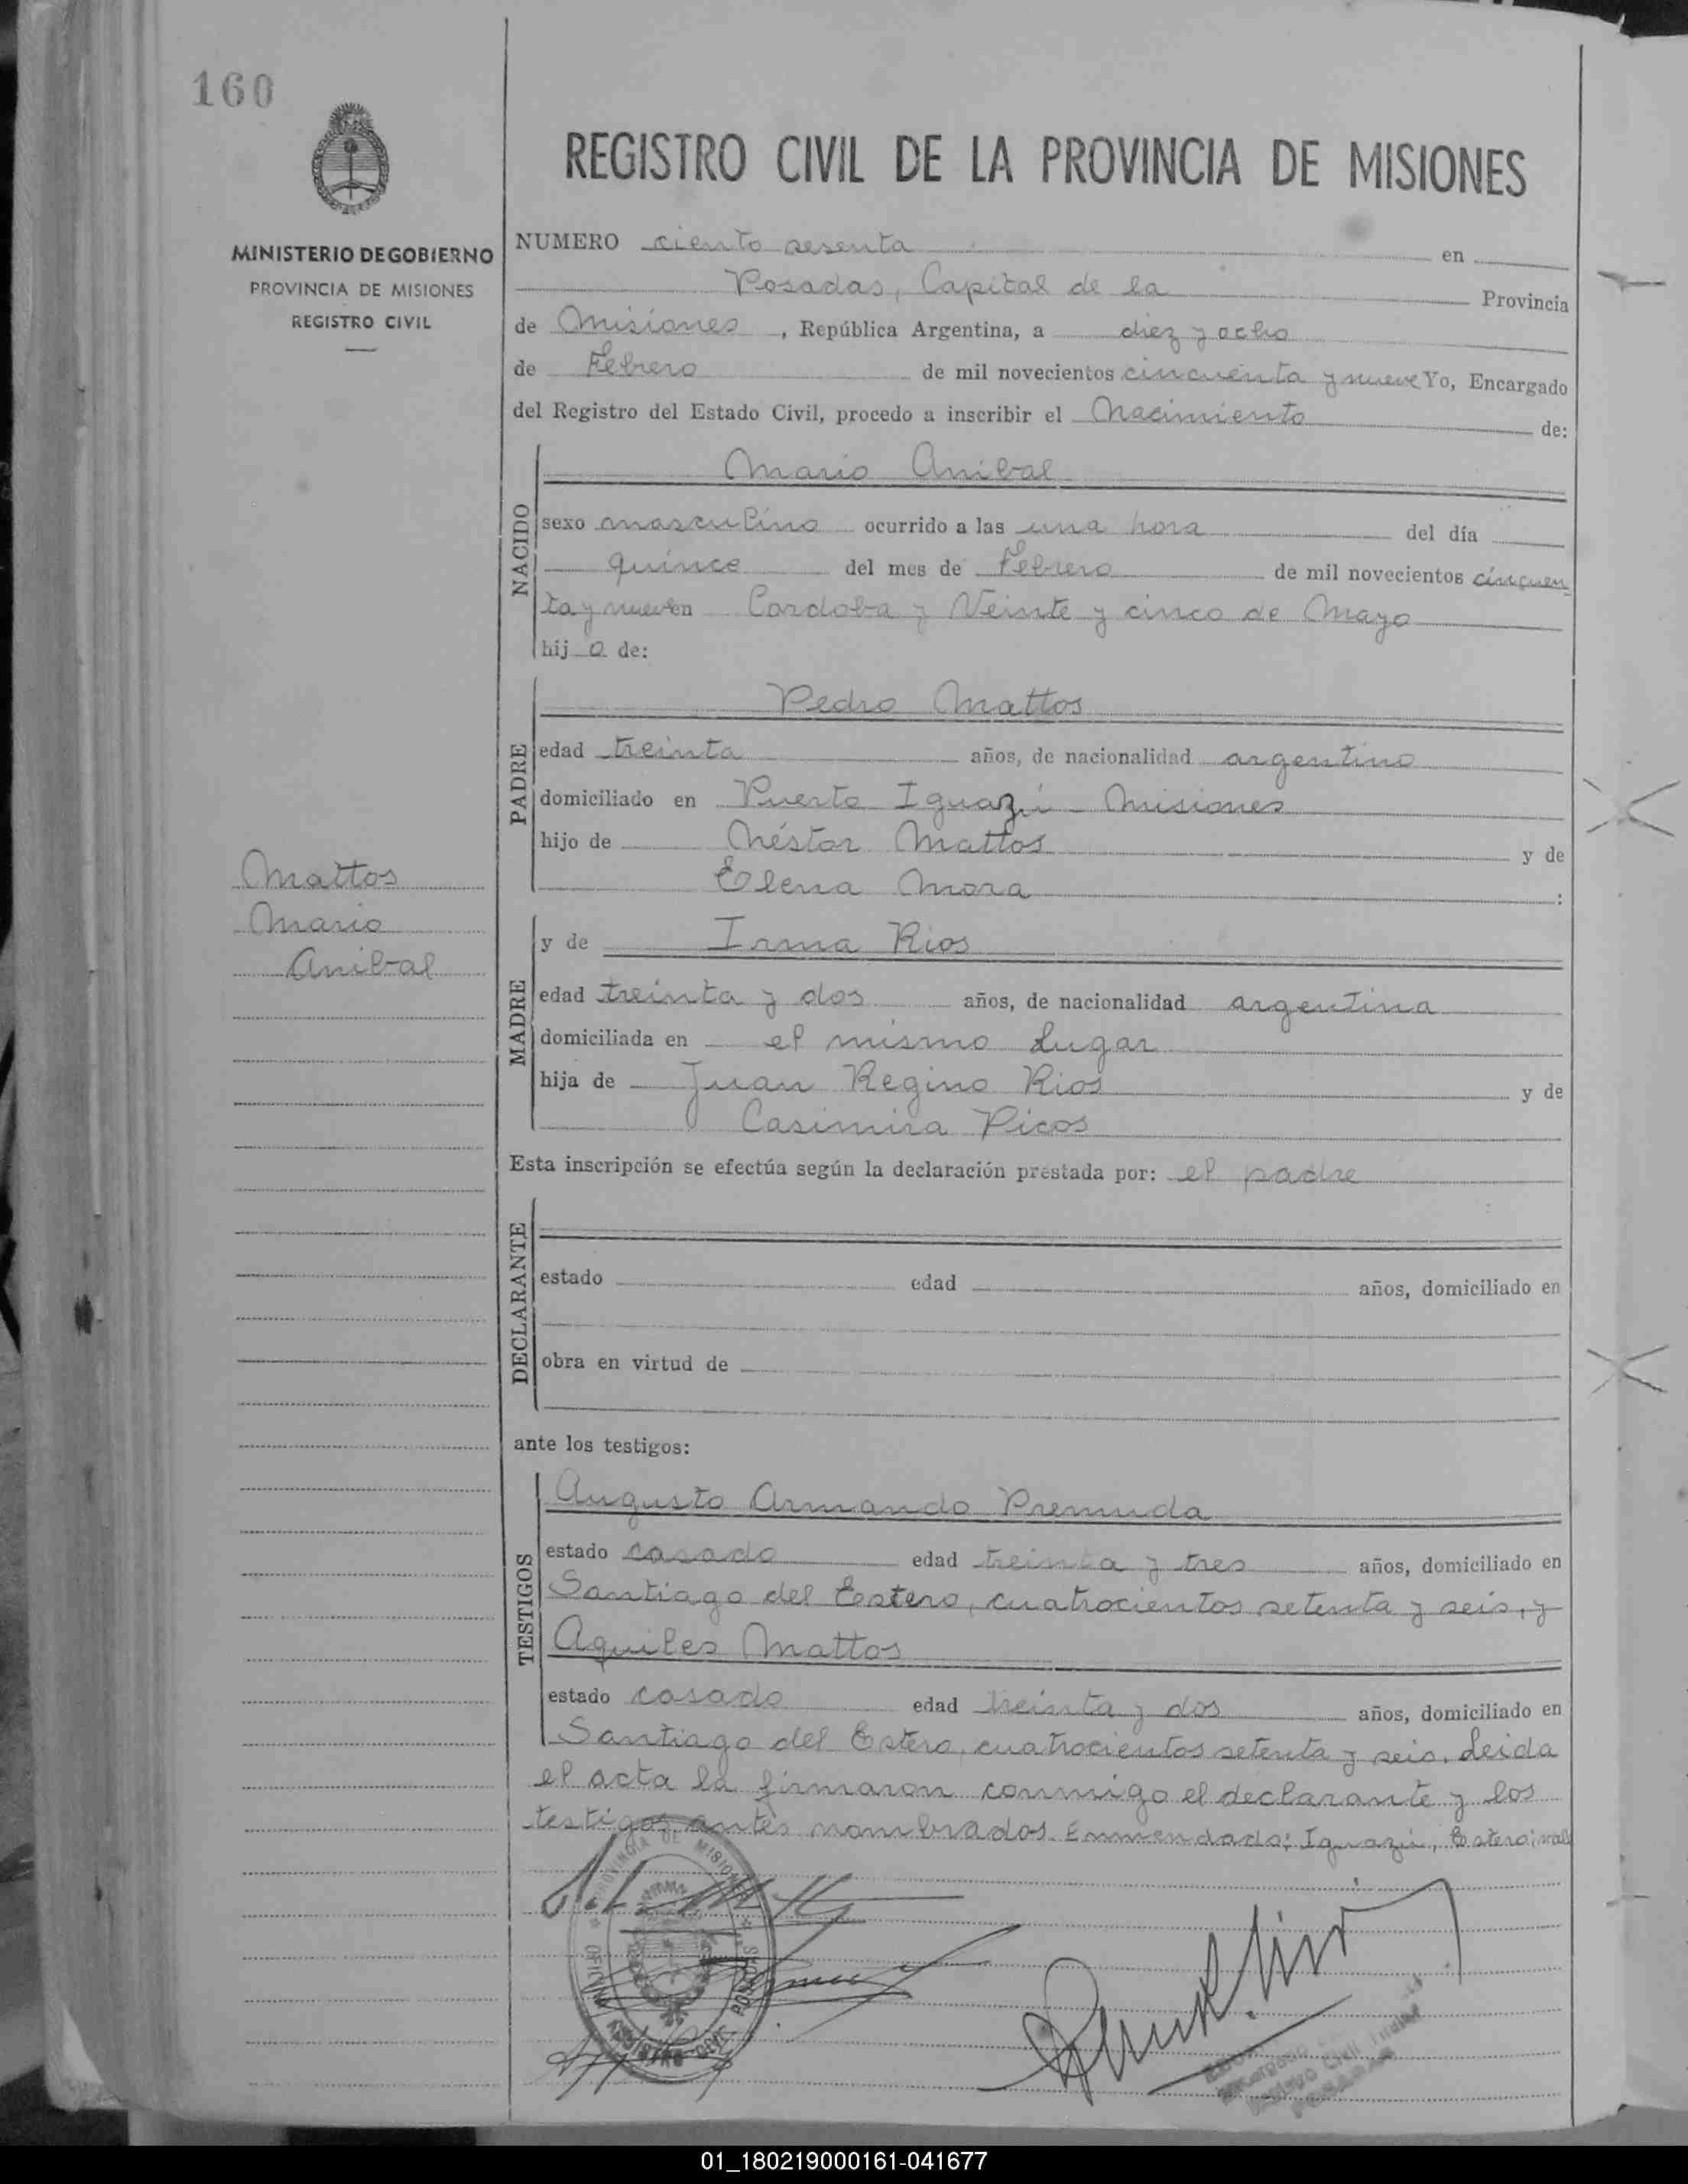 160
REGISTRO CIVIL DE LA PROVINCIA DE MISIONES
MINISTERIO DE GOBIERNO
PROVINCIA DE MISIONES
REGISTRO CIVIL
NUMERO ciento sesenta en
Posadas, Capital de la Provincia
de Misiones, República Argentina, a diez y ocho
de Febrero de mil novecientos cincuenta y nueve Yo, Encargado
del Registro del Estado Civil, procedo a inscribir el Nacimiento de:
NACIDO
Mario Anibal
sexo masculino ocurrido a las una hora del día
quince del mes de Febrero de mil novecientos cincuen
ta y nueve en Cordoba y Veinte y cinco de Mayo
hijo de:
PADRE
Pedro Mattos
edad treinta años, de nacionalidad argentino
domiciliado en Puerto Iguazú - Misiones
hijo de Néstor Mattos y de
Elena Mora :
Mattos
Mario
Anibal
MADRE
y de Irma Rios
edad treinta y dos años, de nacionalidad argentina
domiciliada en el mismo Lugar
hija de Juan Regino Rios y de
Casimira Picos
Esta inscripción se efectúa según la declaración prestada por: el padre
DECLARANTE
estado edad años, domiciliado en
obra en virtud de
ante los testigos:
TESTIGOS
Augusto Armando Premuda
estado casado edad treinta y tres años, domiciliado en
Santiago del Estero, cuatrocientos setenta y seis, y
Aquiles Mattos
estado casado edad treinta y dos años, domiciliado en
Santiago del Estero, cuatrocientos setenta y seis. Leida
el acta la firmaron conmigo el declarante y los
testigos antes nombrados. Enmendado: Iguazú, Estero: vale
PROVINCIA DE MISIONES
OFICINA REGISTRO CIVIL POSADAS
01_180219000161-041677